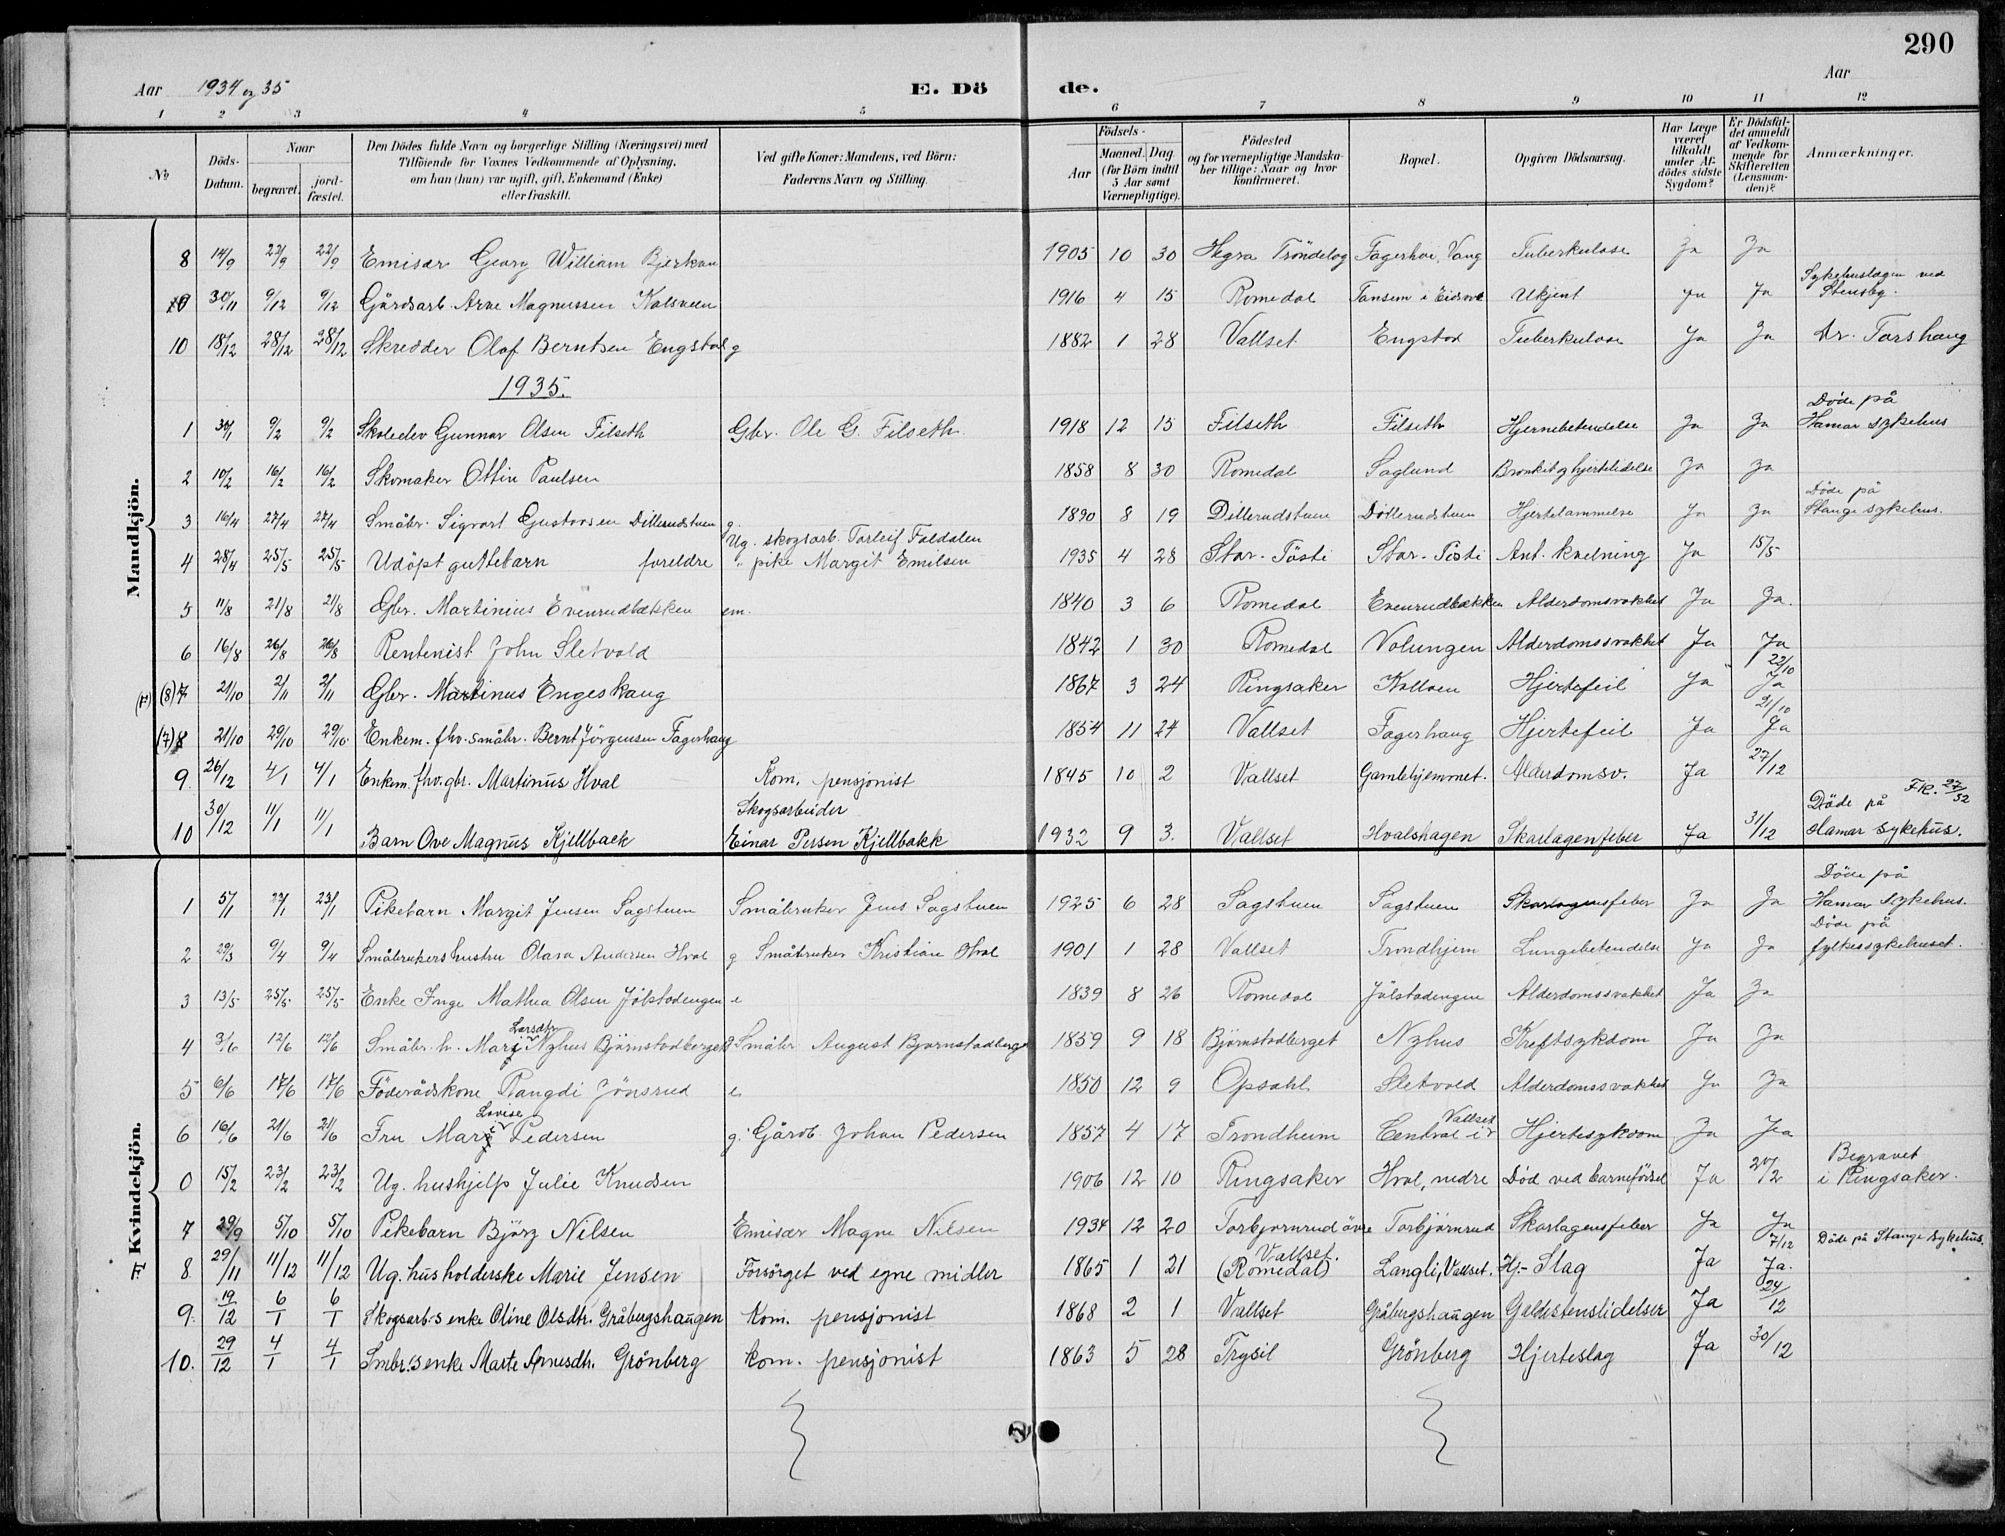 290
Aar 1934 og 35 E. Dö de. Aar
1 2 3 4 5 6 7 8 9 10 11 12
No
Döds-Datum.
Naar
begravet.
jordfæstet.
Den Dödes fulde Navn og borgerlige Stilling (Næringsvei) med
Tilföiende for Voxnes Vedkommende af Oplysning,
om han (hun) var ugift, gift, Enkemand (Enke)
eller fraskilt.
Ved gifte Koner: Mandens, ved Börn:
Faderens Navn og Stilling.
Födsels-
Aar
Maaned. Dag
(for Börn indtil
5 Aar samt
Værnepligtige).
Födested
og for værnepligtige Mandska-
ber tillige: Naar og hvor
konfirmeret.
Bopæl.
Opgiven Dödsaarsag.
Har Læge
været
tilkaldt
under Af-
dödes sidste
Sygdom?
Er Dödsfal-
det anmeldt
af Vedkom-
mende for
Skifteretten
(Lensman-
den)?
Anmærkninger.
Mandkjön.
8 14/9 22/9 22/9 Emisær Georg William Bjerkan 1905 10 30 Hegra Tröndelag Fagerhöi, Vang Tuberkulose Ja Ja
9 30/11 9/12 9/12 Gårdsarb Arne Magnussen Kalsveen 1916 4 15 Romedal Tansem i Eidsvol Ukjent Ja Ja Sykehuslægen ved Stensby.
10 18/12 28/12 28/12 Skredder Olaf Berntsen Engstad g 1882 1 28 Vallset Engstad Tuberkulose Ja Ja Dr. Torshaug
1935.
1 30/1 9/2 9/2 Skoleelev Gunnar Olsen Filseth Gbr. Ole G. Filseth. 1918 12 15 Filseth Filseth Hjernebetendelse Ja Ja Döde på Hamar sykehus
2 10/2 16/2 16/2 Skomaker Ottin Paulsen 1858 8 30 Romedal Saglund Bronkit og hjertelidelse Ja Ja
3 16/4 27/4 27/4 Småbr. Sigvart Gustavsen Dillerudstuen g. 1890 8 19 Dillerudstuen Döllerudstuen Hjertelammelse Ja Ja Döde på Stange sykehus.
4 28/4 25/5 25/5 Udöpt guttebarn foreldre Ug. skogsarb. Torleif Foldalen " pike Margit Emilsen 1935 4 28 Stor-Tösti Stor-Tösti Ant. kvelning Ja 15/5
5 11/8 21/8 21/8 Gbr. Martinius Evenrudbækken em. 1840 3 6 Romedal Evenrudbækken Alderdomsvakhet Ja Ja.
6 16/8 26/8 26/8 Rentenist John Sletvold 1842 1 30 Romedal Volungen Alderdomssvakhet Ja Ja
(F) (8) 7 21/10 2/11 2/11 Gbr. Martinus Engeshaug 1867 3 24 Ringsaker Kolloen Hjertefeil Ja 22/10 Ja
(7) 8 21/10 29/10 29/10 Enkem. fhv. småbr. Bernt Jörgensen Fagerhaug 1854 11 24 Vallset Fagerhaug Hjertefeil Ja 21/10 Ja
9. 26/12 4/1 4/1 Enkem. fhv. gbr. Martinus Hval Kom. pensjonist 1845 10 2 Vallset Gamlehjemmet. Alderdomsv. Ja 27/12
10 30/12 11/1 11/1 Barn Ove Magnus Kjellback Skogsarbeider Einar Persen Kjellbakk 1932 9 3. Vallset Hvalshagen Skarlagenfeber Ja 31/12 Döde på Hamar sykehus. FR. 27/32
F Kvindekjön.
1 5/1 23/1 23/1 Pikebarn Margit Jensen Sagstuen Småbruker Jens Sagstuen 1925 6 28 Sagstuen Sagstuen Skarlagensfeber Ja Ja Döde på Hamar sykehus.
2 29/3 9/4 9/4 Småbrukers hustru Olava Andersen Hval g Småbruker Kristian Hval 1901 1 28 Vallset Trondhjem Lungebetendelse Ja Ja Döde på fylkessykehuset.
3 13/5 25/5 25/5 Enke Inge Mathea Olsen Jölstadengen e 1839 8 26 Romedal Jölstadengen Alderdomssvakhet Ja Ja
4 3/6 12/6 12/6 Småbr. h. Mari Larsdtr Nyhus Björnstadberget g Småbr August Bjørnstadberge 1859 9 18 Björnstadberget Nyhus Kreftsykdom Ja Ja
5 6/6 17/6 17/6 Föderådskone Rangdi Jönsrud e 1850 12 9 Opsahl Sletvold Alderdomssvakhet Ja Ja
6 16/6 21/6 21/6 Fru Mari Lovise Pedersen g. Gårdb. Johan Pedersen 1857 4 17 Trondheim Central i Vallset Hjertesykdom Ja Ja
0 15/2 23/2 23/2 Ug. hushjelp Julie Knudsen 1906 12 10 Ringsaker Hval, nedre Död ved barnefödsel Ja 20/2 Begravet i Ringsaker.
7 29/9 5/10 5/10 Pikebarn Björg Nilsen Emisær Magne Nilsen 1934 12 20 Torbjørnrud övre Torbjörnrud Skarlagensfeber Ja Ja
8. 29/11 11/12 11/12 Ug. husholderske Marie Jensen Forsörget ved egne midler 1865 1 21 Vallset. (Romedal) Langli, Vallset. Hj.-Slag Ja 7/12 Ja. Döde på Stange sykehus.
9. 19/12 6/1 6/1 Skogsarb.s enke Oline Olsdtr. Gråbergshaugen Kom. pensjonist 1868 2 1 Vallset Gråbergshaugen Galdestenslidelser Ja 24/12
10. 29/12 4/1 4/1 Smbr.s enke Marte Arnesdtr. Grönberg kom. pensjonist 1863 5 28 Trysil Grönberg Hjerteslag Ja 30/12